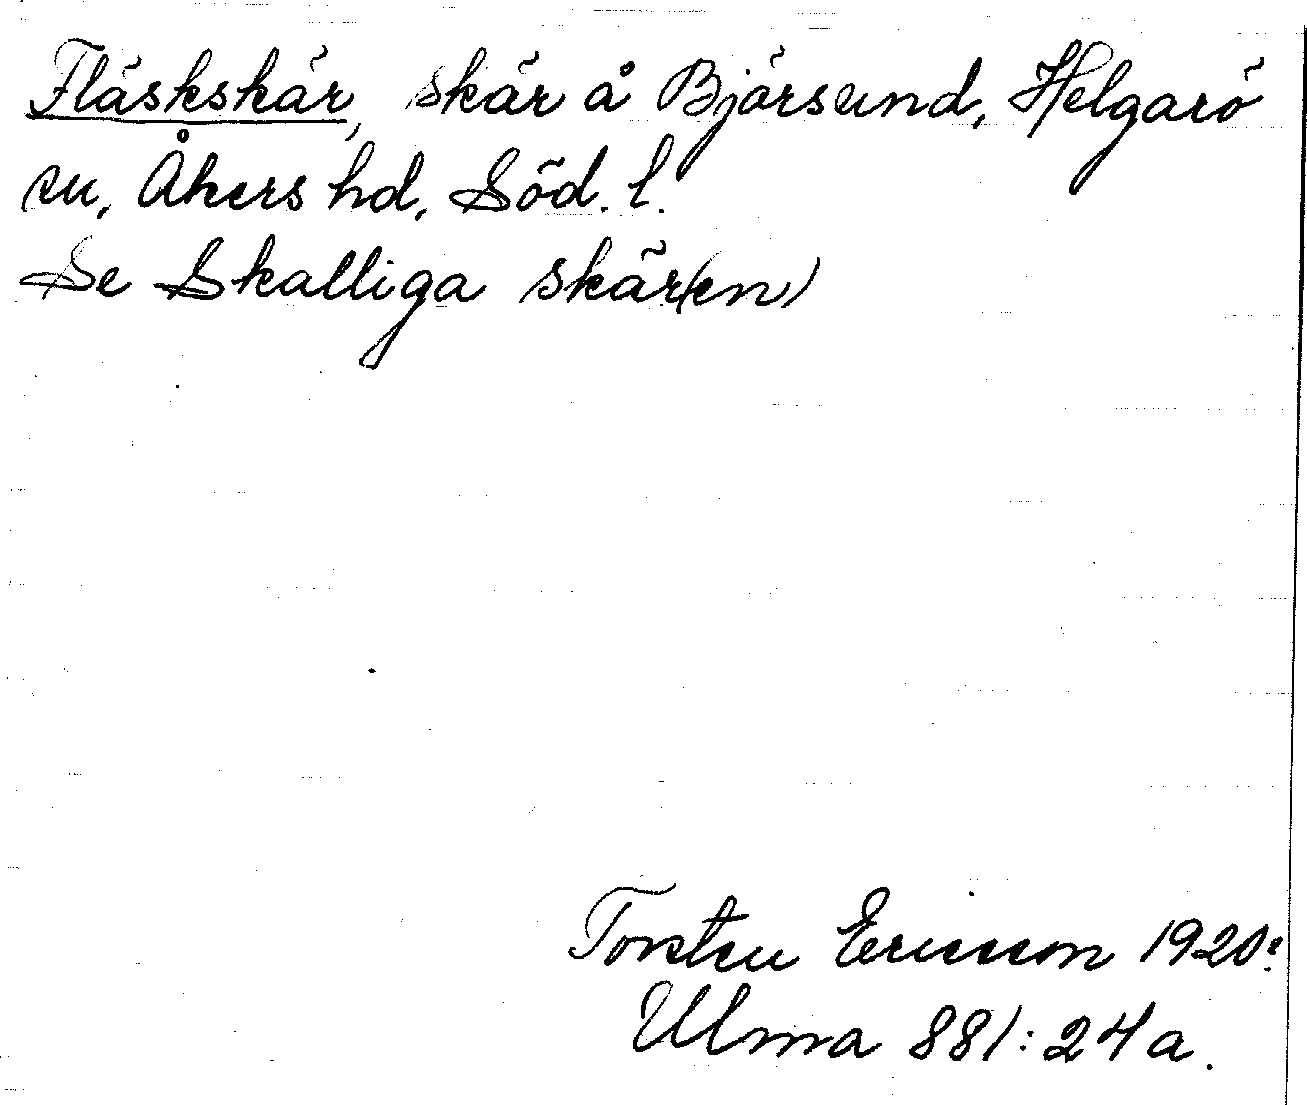 Fläskskär, skär å Björsund, Helgarö
sn, Åkers hd, Söd. l.
Se Skalliga skär(en)
Torsten Ericsson 1920?
Ulma 881:24a.